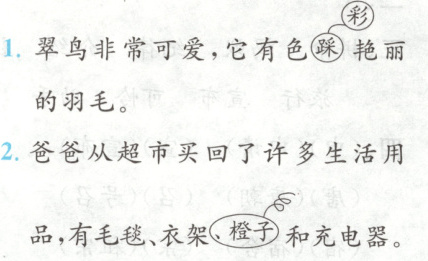 彩
1. 翠鸟非常可爱,它有色踩艳丽
的羽毛。
2. 爸爸从超市买回了许多生活用
品,有毛毯、衣架、橙子和充电器。